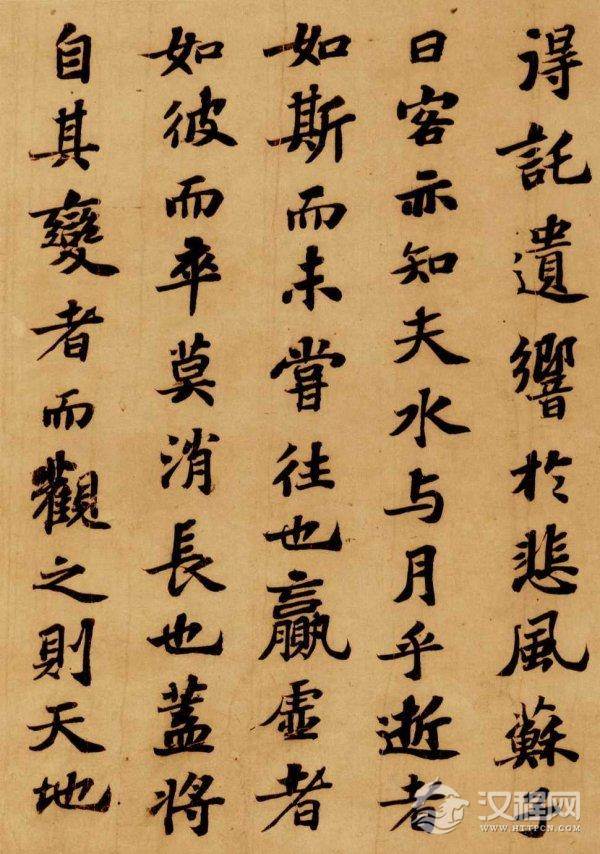 得託遺響於悲風蘇子
曰客亦知夫水与月乎逝者
如斯而未嘗往也贏虛者
如彼而卒莫消長也蓋將
自其變者而觀之則天地
汉程网
WWW.HTTPCN.COM